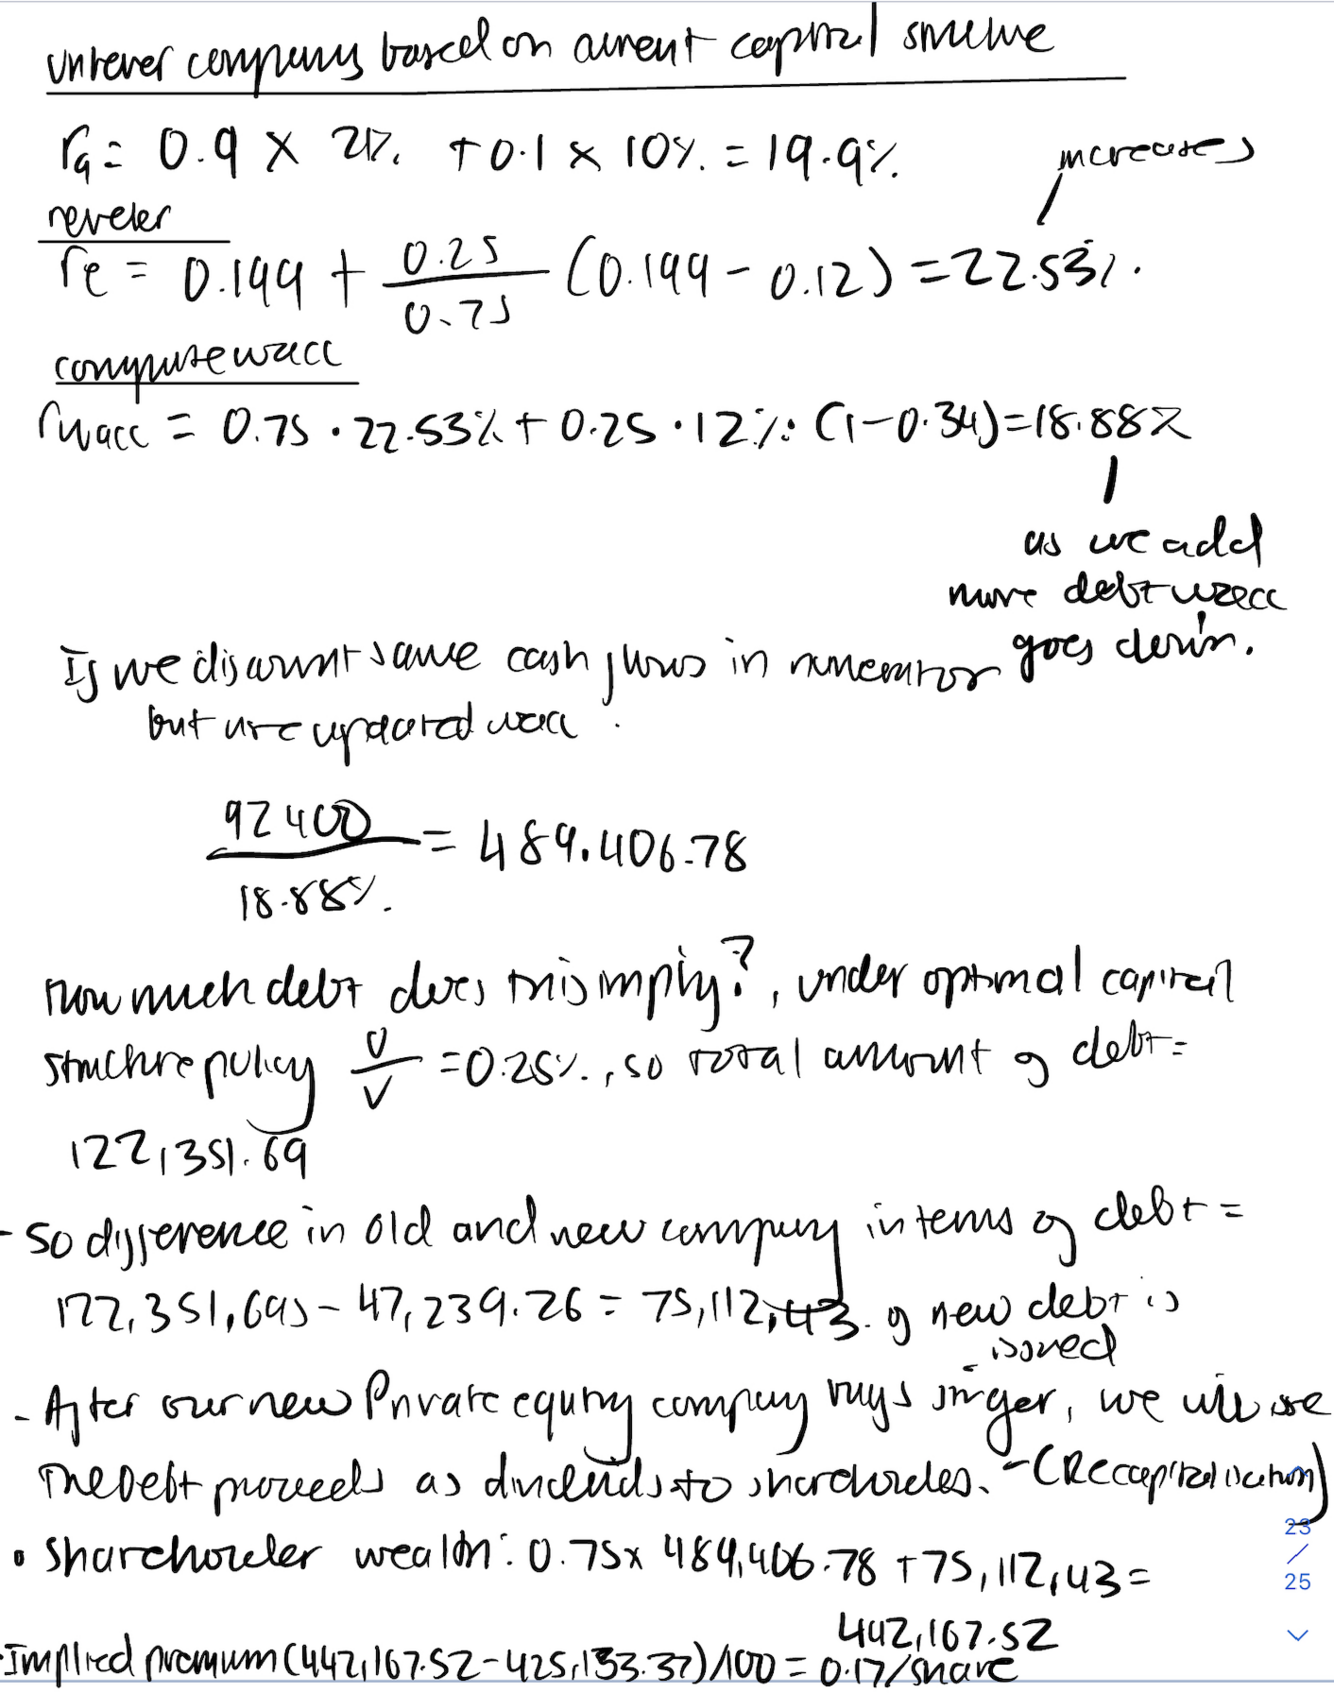 unlever company based on current capital structure
ra = 0.9 × 21% + 0.1 × 10% = 19.9%
increases
relever
re = 0.199 + 0.25/0.75 (0.199 - 0.12) = 22.53%.
compute wacc
rwacc = 0.75 · 22.53% + 0.25 · 12% · (1-0.34) = 18.88%
as we add
more debt wacc
goes down.
If we discount same cash flows in numerator
but use updated wacc.
92400/18.88% = 489,406.78
how much debt does this imply?, under optimal capital
structure policy D/V = 0.25%, so total amount of debt =
122,351.69
- So difference in old and new company in terms of debt =
122,351,695 - 47,239.26 = 75,112,43. of new debt is
issued
- After our new Private equity company buys singer, we will use
the Debt proceeds as dividends to shareholders. - (Recapitalisation)
• Shareholder wealth: 0.75 x 489,406.78 + 75,112,43 =
442,167.52
- Implied premium (442,167.52 - 425,133.37)/100 = 0.17/share
23
/
25